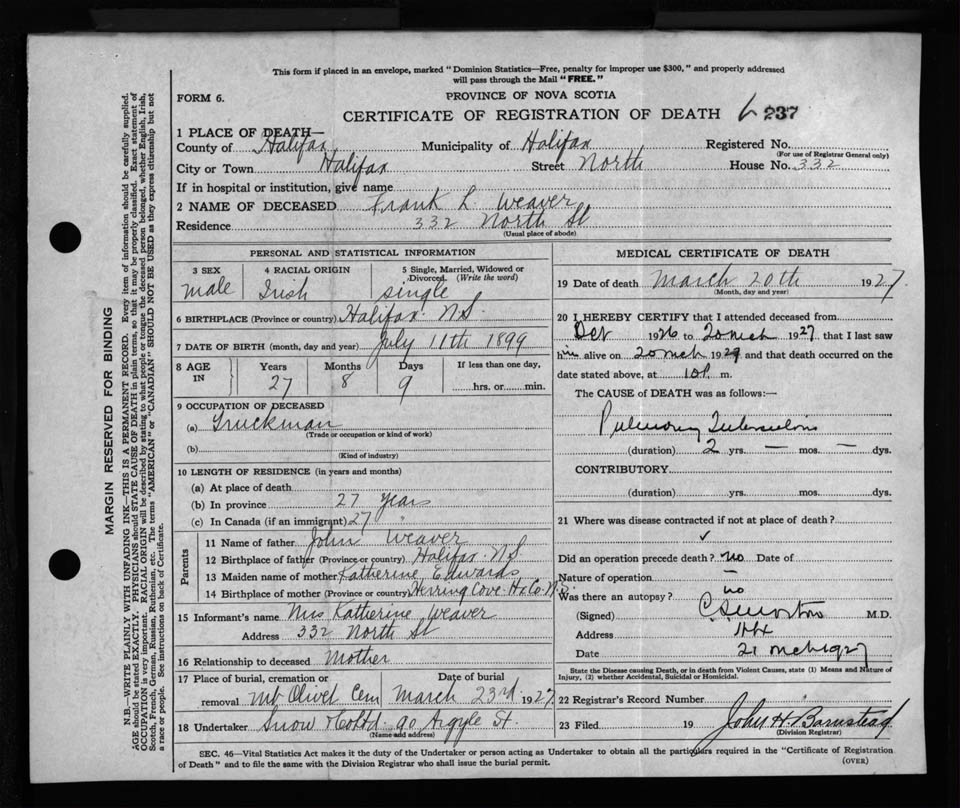 This form if placed in an envelope, marked "Dominion Statistics—Free, penalty for improper use $300," and properly addressed
will pass through the Mail "FREE."
FORM 6.
PROVINCE OF NOVA SCOTIA
CERTIFICATE OF REGISTRATION OF DEATH 237
1 PLACE OF DEATH—
County of Halifax Municipality of Halifax Registered No.
(For use of Registrar General only)
City or Town Halifax Street North House No. 332
If in hospital or institution, give name
2 NAME OF DECEASED Frank L. Weaver
Residence 332 North St
(Usual place of abode)
PERSONAL AND STATISTICAL INFORMATION
3 SEX 4 RACIAL ORIGIN 5 Single, Married, Widowed or
Divorced. (Write the word)
male Irish single
6 BIRTHPLACE (Province or country) Halifax N.S.
7 DATE OF BIRTH (month, day and year) July 11th 1899
8 AGE IN Years Months Days If less than one day,
27 8 9 hrs. or min.
9 OCCUPATION OF DECEASED
(a) Truckman
(Trade or occupation or kind of work)
(b)
(Kind of industry)
10 LENGTH OF RESIDENCE (in years and months)
(a) At place of death
(b) In province 27 years
(c) In Canada (if an immigrant) 27 "
Parents
11 Name of father John Weaver
12 Birthplace of father (Province or country) Halifax N.S.
13 Maiden name of mother Katherine Edwards
14 Birthplace of mother (Province or country) Herring Cove Hx Co. N.S.
15 Informant's name Mrs Katherine Weaver
Address 332 North St
16 Relationship to deceased Mother
17 Place of burial, cremation or Date of burial
removal Mt Olivet Cem March 23rd 1927
18 Undertaker Snow & Co Ltd. 90 Argyle St.
(Name and address)
MEDICAL CERTIFICATE OF DEATH
19 Date of death March 20th 1927
(Month, day and year)
20 I HEREBY CERTIFY that I attended deceased from
1926 to 20 Mch 1927 that I last saw
him alive on 20 Mch 1927 and that death occurred on the
date stated above, at 10 P. m.
The CAUSE of DEATH was as follows:—
Pulmonary Tuberculosis
(duration) 2 yrs. — mos. — dys.
CONTRIBUTORY.
(duration) yrs. mos. dys.
21 Where was disease contracted if not at place of death?
✓
Did an operation precede death? no Date of
Nature of operation —
Was there an autopsy? no
(Signed) M.D.
Address Hfx
Date 21 Mch 1927
State the Disease causing Death, or in death from Violent Causes, state (1) Means and Nature of
Injury, (2) whether Accidental, Suicidal or Homicidal.
22 Registrar's Record Number
23 Filed 19 John H. Barnstead
(Division Registrar)
SEC. 46—Vital Statistics Act makes it the duty of the Undertaker or person acting as Undertaker to obtain all the particulars required in the "Certificate of Registration
of Death" and to file the same with the Division Registrar who shall issue the burial permit.
(OVER)
MARGIN RESERVED FOR BINDING
N.B.—WRITE PLAINLY WITH UNFADING INK—THIS IS A PERMANENT RECORD. Every item of information should be carefully supplied.
AGE should be stated EXACTLY. PHYSICIANS should STATE CAUSE OF DEATH in plain terms, so that it may be properly classified. Exact statement of
OCCUPATION is very important. RACIAL ORIGIN will be described by stating to what people or tongue the deceased person belonged, whether English, Irish,
Scotch, French, German, Russian, Ruthenian, etc. The terms "AMERICAN" or "CANADIAN" SHOULD NOT BE USED as they express citizenship but not
a race or people. See instructions on back of Certificate.